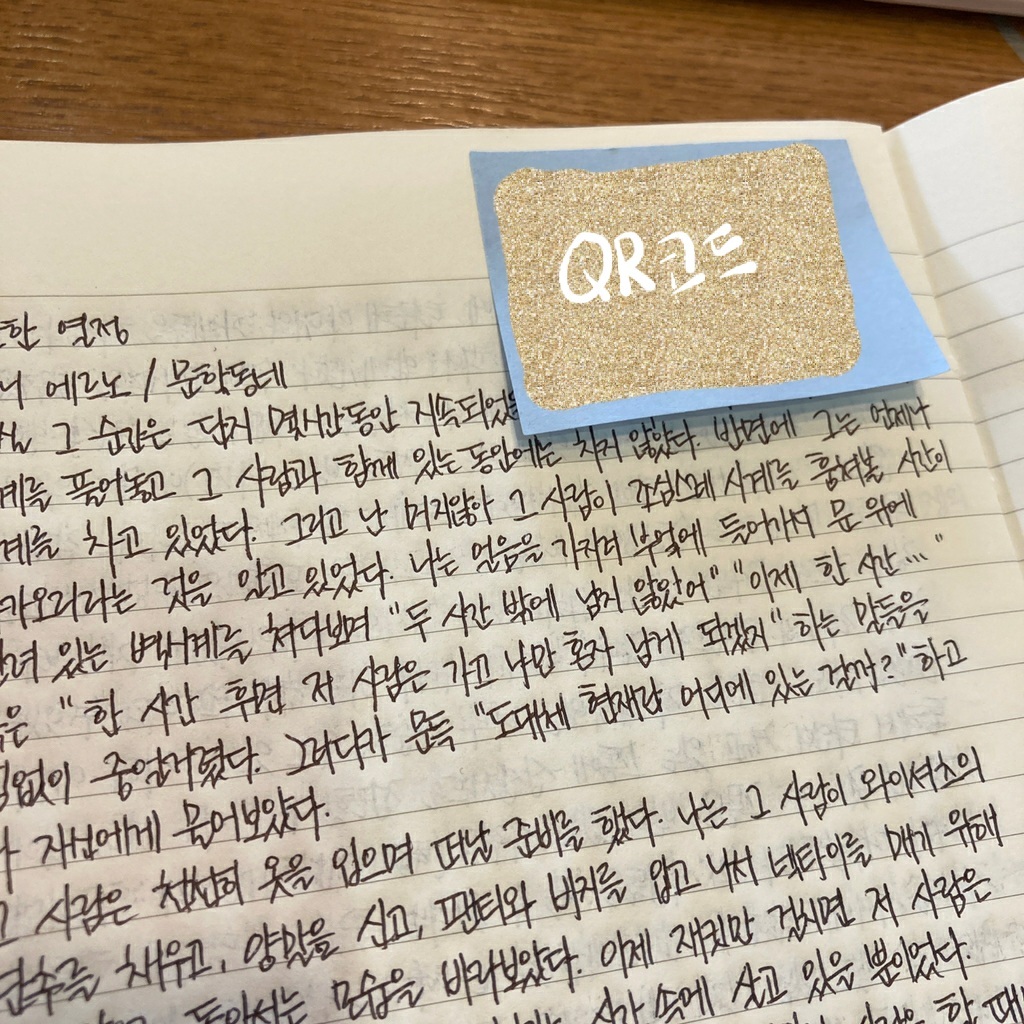 QR코드
한 열정
니 에르노 / 문학동네
그 순간은 단지 몇시간동안 지속되었
계를 풀어놓고 그 사람과 함께 있는동안에는 차지 않았다. 반면에 그는 언제나
계를 차고 있었다. 그리고 난 머지않아 그 사람이 조심스레 시계를 훔쳐볼 시간이
가오리라는 것을 알고 있었다. 나는 얼음을 가지러 부엌에 들어가서 문 위에
려 있는 벽시계를 쳐다보며 "두 시간 밖에 남지 않았어" "이제 한 시간..."
은 "한 시간 후면 저 사람은 가고 나만 혼자 남게 되겠지" 하는 말들을
없이 중얼거렸다. 그러다가 문득 "도대체 현재란 어디에 있는 걸까?" 하고
자신에게 물어보았다.
사람은 천천히 옷을 입으며 떠날 준비를 했다. 나는 그 사람이 와이셔츠의
단추를 채우고, 양말을 신고, 팬티와 바지를 입고 나서 넥타이를 매기 위해
돌아서는 모습을 바라보았다. 이제 재킷만 걸치면 저 사람은
속에 살고 있을 뿐이었다.